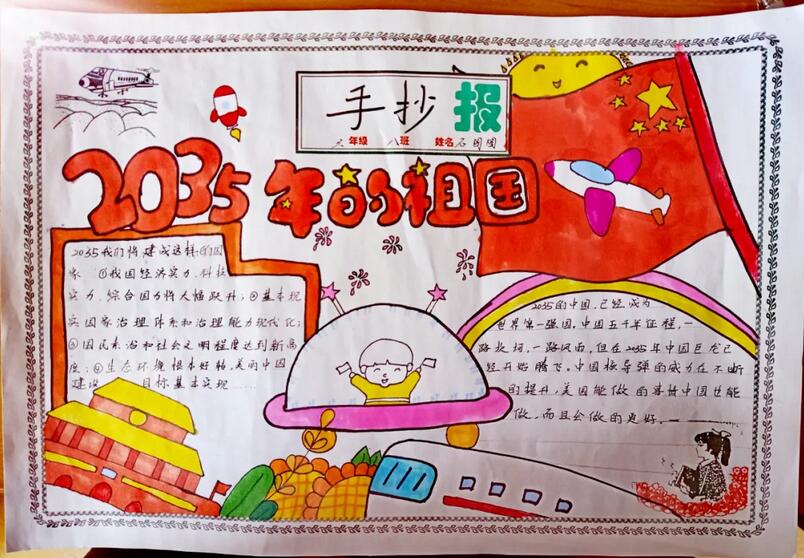 手抄报
三年级 八班 姓名石图图
2035年的祖国
2035我们将建成这样的国
家 ①我国经济实力、科技
实力、综合国力将大幅跃升；②基本现
实国家治理体系和治理能力现代化；
③国民素治和社会文明程度达到新高
度；④生态环境根本好转，美丽中国
建设 目标基本实现……
2035的中国，已经成为
世界第一强国，中国五千年征程，一
路坎坷，一路风雨，但在2035年中国巨龙已
经开始腾飞。中国核导弹的威力在不断
的提升，美国能做的事情中国也能
做，而且会做的更好。